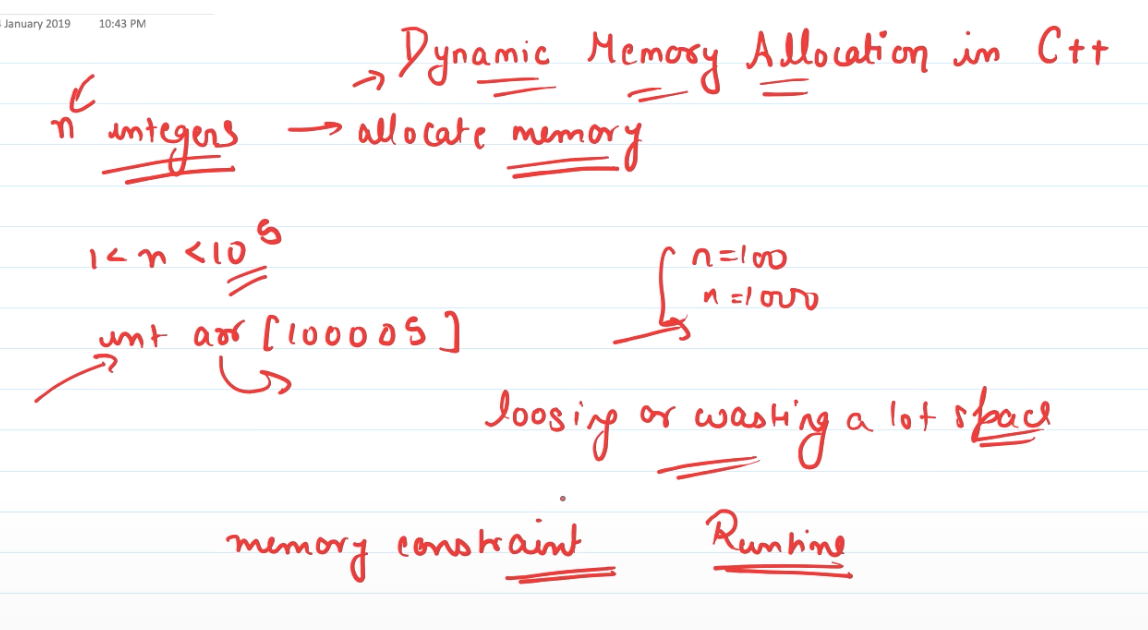 January 2019 10:43 PM
→ Dynamic Memory Allocation in C++
n integers → allocate memory
1 < n < 10^5
n=100
n=1000
int arr [100005]
loosing or wasting a lot space
memory constraint Runtime